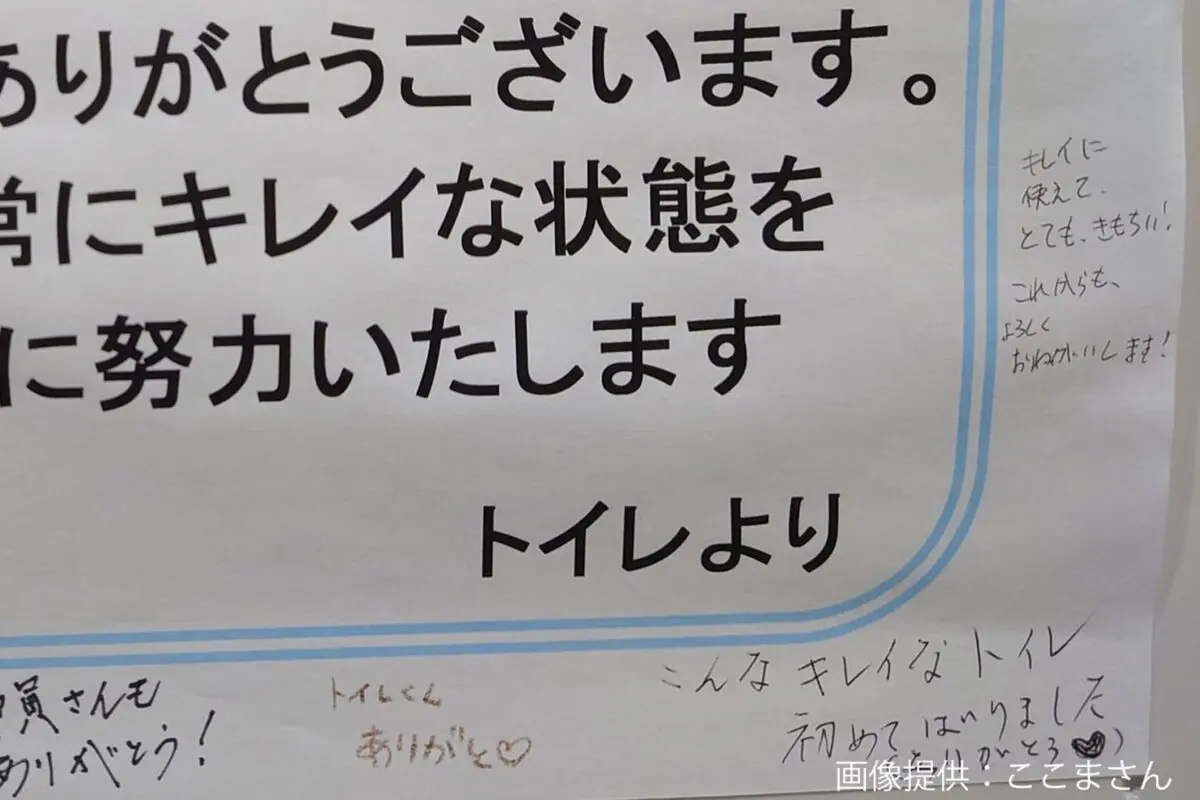 ありがとうございます。
常にキレイな状態を
に努力いたします
トイレより
キレイに
使えて、
とても、きもちいい!
これからも、
よろしく
おねがいします!
員さんも
ありがとう!
トイレくん
ありがと♡
こんなキレイなトイレ
初めてはいりました
ありがとう♥)
画像提供:ここまさん